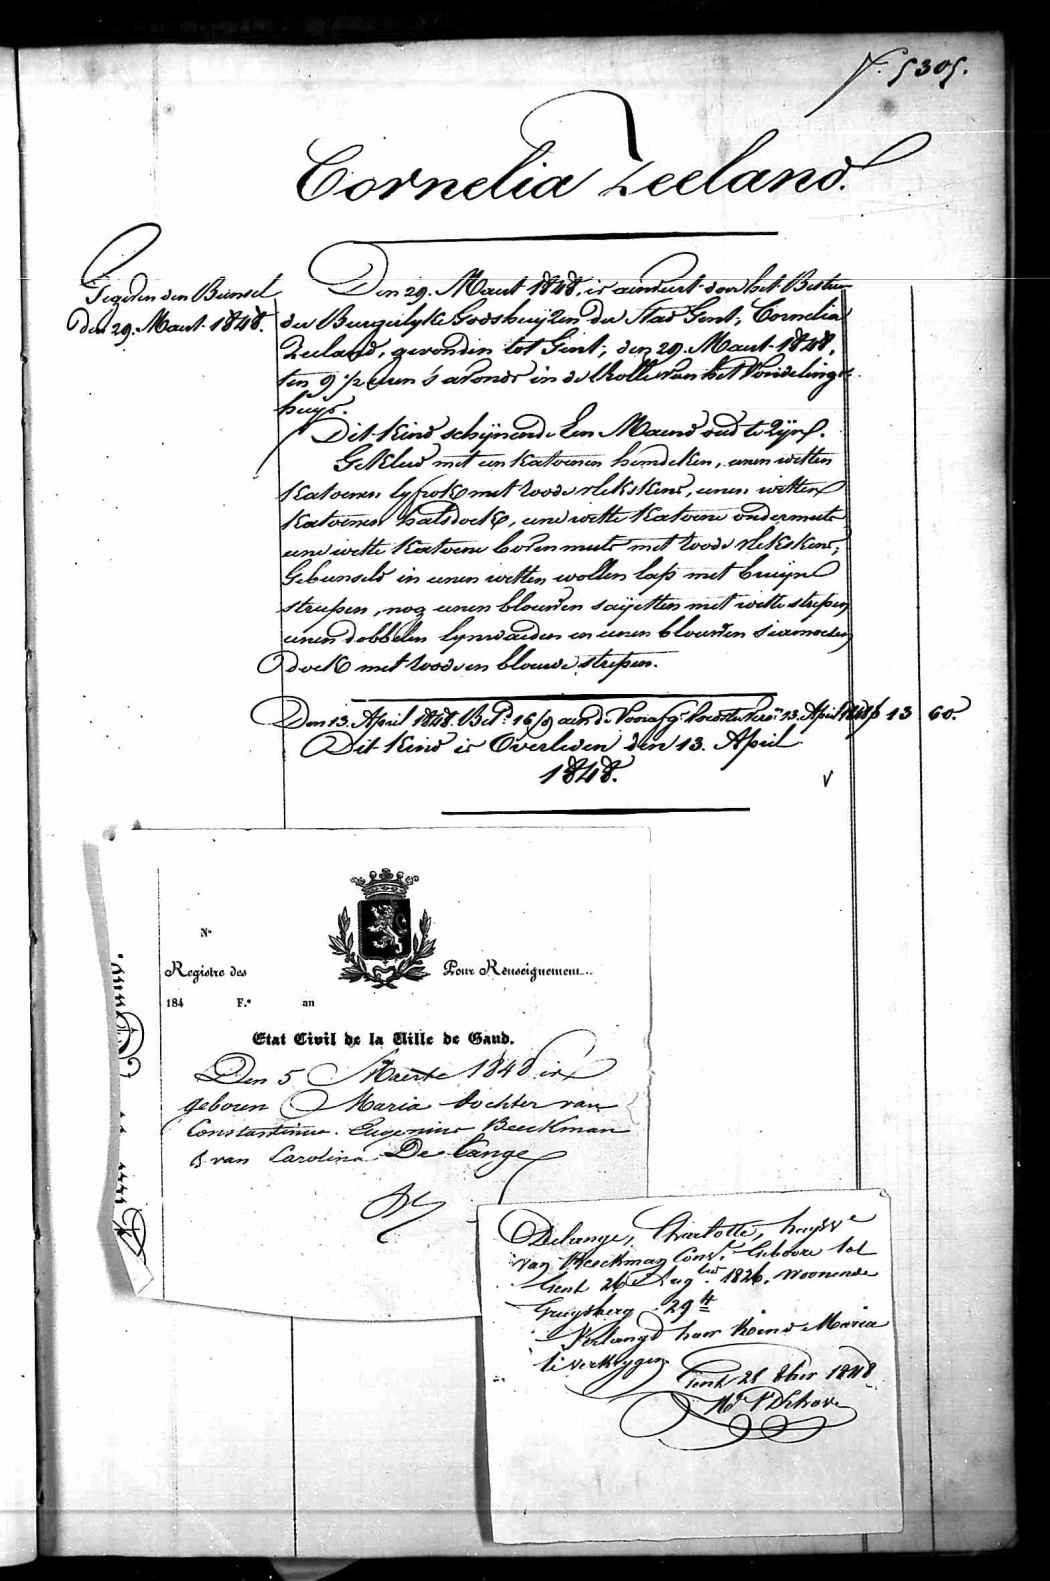 N.º 5305.
Cornelia Zeeland.
Gegeven den Bunsel
den 29. Maart 1848.
Den 29. Maart 1848, is aenveert door het Bestier
der Burgerlyke Godshuyzen der Stad Gent, Cornelia
Zeeland, gevonden tot Gent, den 29. Maart 1848,
ten 9 1/2 uren 's avonds in de Rolle van het Vondelings-
huys.
Dit Kind schijnende Een Maend oud te Zijn.
Gekleed met een Katoenen hemdeken, eenen witten
Katoenen lyfrok met roode vlekskens, eenen witten
Katoenen halsdoek, eene witte Katoene ondermuts
eene witte Katoene bovenmuts met roode vlekskens;
Gebunseld in eenen witten wollen lap met bruyne
streepen, nog eenen blouwen sayetten met witte strepen
eenen dobbelen lynwaeden en eenen blouwen siamoesen
doek met roode en blouwe strepen.
Den 13. April 1848. Bet.d 16/9 aen de Voorafg. 13. April 1848 f 13 60.
Dit Kind is Overleden den 13. April
1848.
N.º
Registre des
Pour Renseignement..
184 F.º an
Etat Civil de la Ville de Gand.
Den 5 Maerte 1848 is
geboren Maria dochter van
Constantinus Eugenius Beeckman
& van Carolina De Lange
Delange, Charlotte, huysv.e
van Beeckman Const. Geboore tot
Gent 26 Aug.tus 1826, woonende
29
Verlangd haar Kind Maria
te verkrygen
Gent 28 8ber 1848